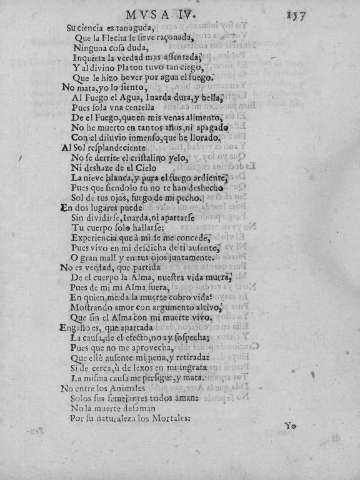 MVSA IV. 157
Su ciencia es tan aguda,
Que la Flecha se sirve raçonada,
Ninguna cosa duda,
Inquieta la verdad mas assentada;
Y al divino Platon tuvo tan ciego,
Que le hizo bever por agua el fuego.
No mata, yo lo siento,
Al Fuego el Agua, Inarda dura, y bella,
Pues sola vna centella
De el Fuego, que en mis venas alimento,
No he muerto en tantos años, ni apagado
Con el diluvio inmenso, que he llorado.
Al Sol resplandeciente
No se derrite el cristalino yelo,
Ni deshaze de el Cielo
La nieve blanca, y pura el fuego ardiente,
Pues que siendolo tu no te han deshecho
Sol de tus ojos, fuego de mi pecho.
En dos lugares puede
Sin dividirse, Inarda, ni apartarse
Tu cuerpo solo hallarse;
Experiencia que à mi se me concede,
Pues vivo en mi desdicha de ti ausente,
O gran mal! y en tus ojos juntamente.
No es verdad, que partida
De el cuerpo la Alma, nuestra vida muera,
Pues de mi mi Alma fuera,
En quien me da la muerte cobro vida:
Mostrando amor con argumento altivo,
Que sin el Alma con mi muerte vivo.
Engaño es, que apartada
La causa, de el efecto, no ay sospecha;
Pues que no me aprovecha,
Que esté ausente mi pena, y retirada:
Si de cerca, ù de lexos en mi ingrata
La misma causa me persigue, y mata.
No entre los Animales
Solos sus semejantes todos aman:
No la muerte desaman
Por su naturaleza los Mortales:
Yo